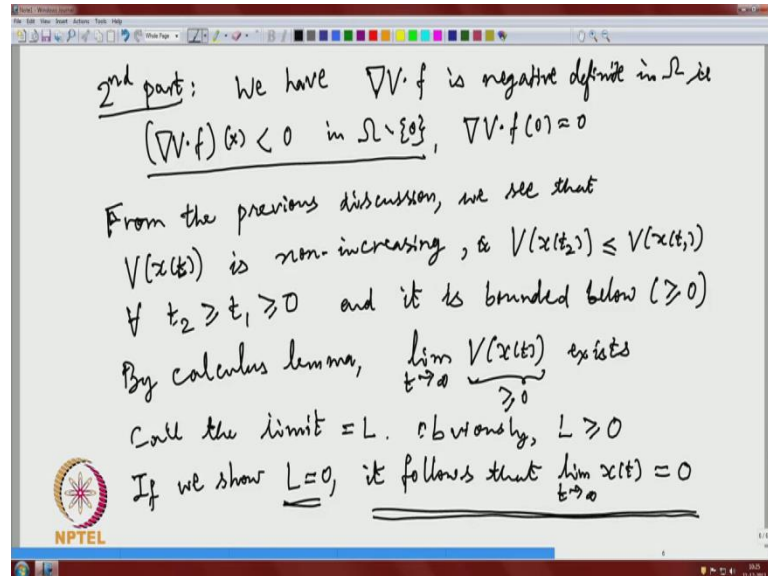 Note1 - Windows Journal
File Edit View Insert Actions Tools Help
Whole Page
2nd part: We have ∇V·f is negative definite in Ω ie
(∇V·f)(x) < 0 in Ω∖{0}, ∇V·f(0) = 0
From the previous discussion, we see that
V(x(t)) is non-increasing, & V(x(t₂)) ≤ V(x(t₁))
∀ t₂ ≥ t₁ ≥ 0 and it is bounded below (≥ 0)
By calculus lemma, lim t→∞ V(x(t)) exists
≥ 0
Call the limit = L. Obviously, L ≥ 0
If we show L=0, it follows that lim t→∞ x(t) = 0
NPTEL
6